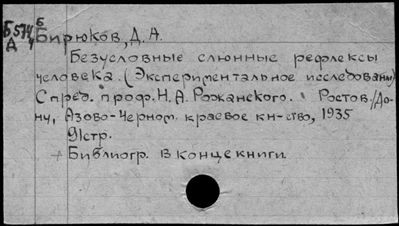 Б574 Бирюков, Д. А.
Безусловные слюнные рефлексы
человека. (Экспериментальное исследование)
С пред. проф. Н. А. Рожанского. Ростов/До-
ну, Азово-Черном. краевое кн-ство, 1935
91стр.
+ Библиогр. в конце книги.